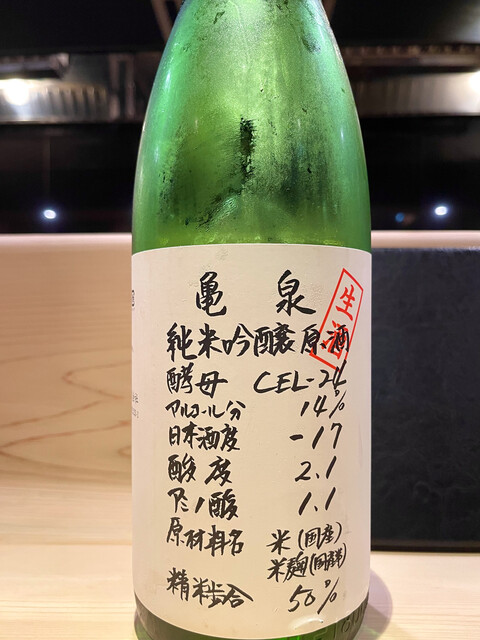 亀泉
生酒
純米吟醸原酒
酵母 CEL-24
アルコール分 14%
日本酒度 -17
酸度 2.1
アミノ酸 1.1
原材料名 米(国産)
米麹(国産米)
精米歩合 50%